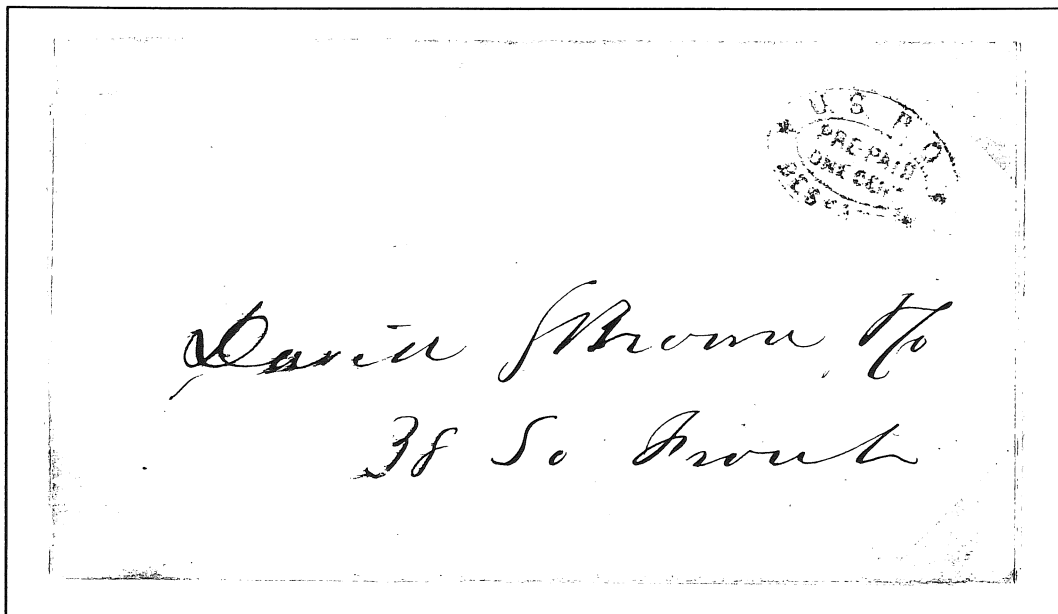 U. S. P. O.
PRE-PAID
ONE CENT
DESPATCH
David S Brown &/Co
38 So Front